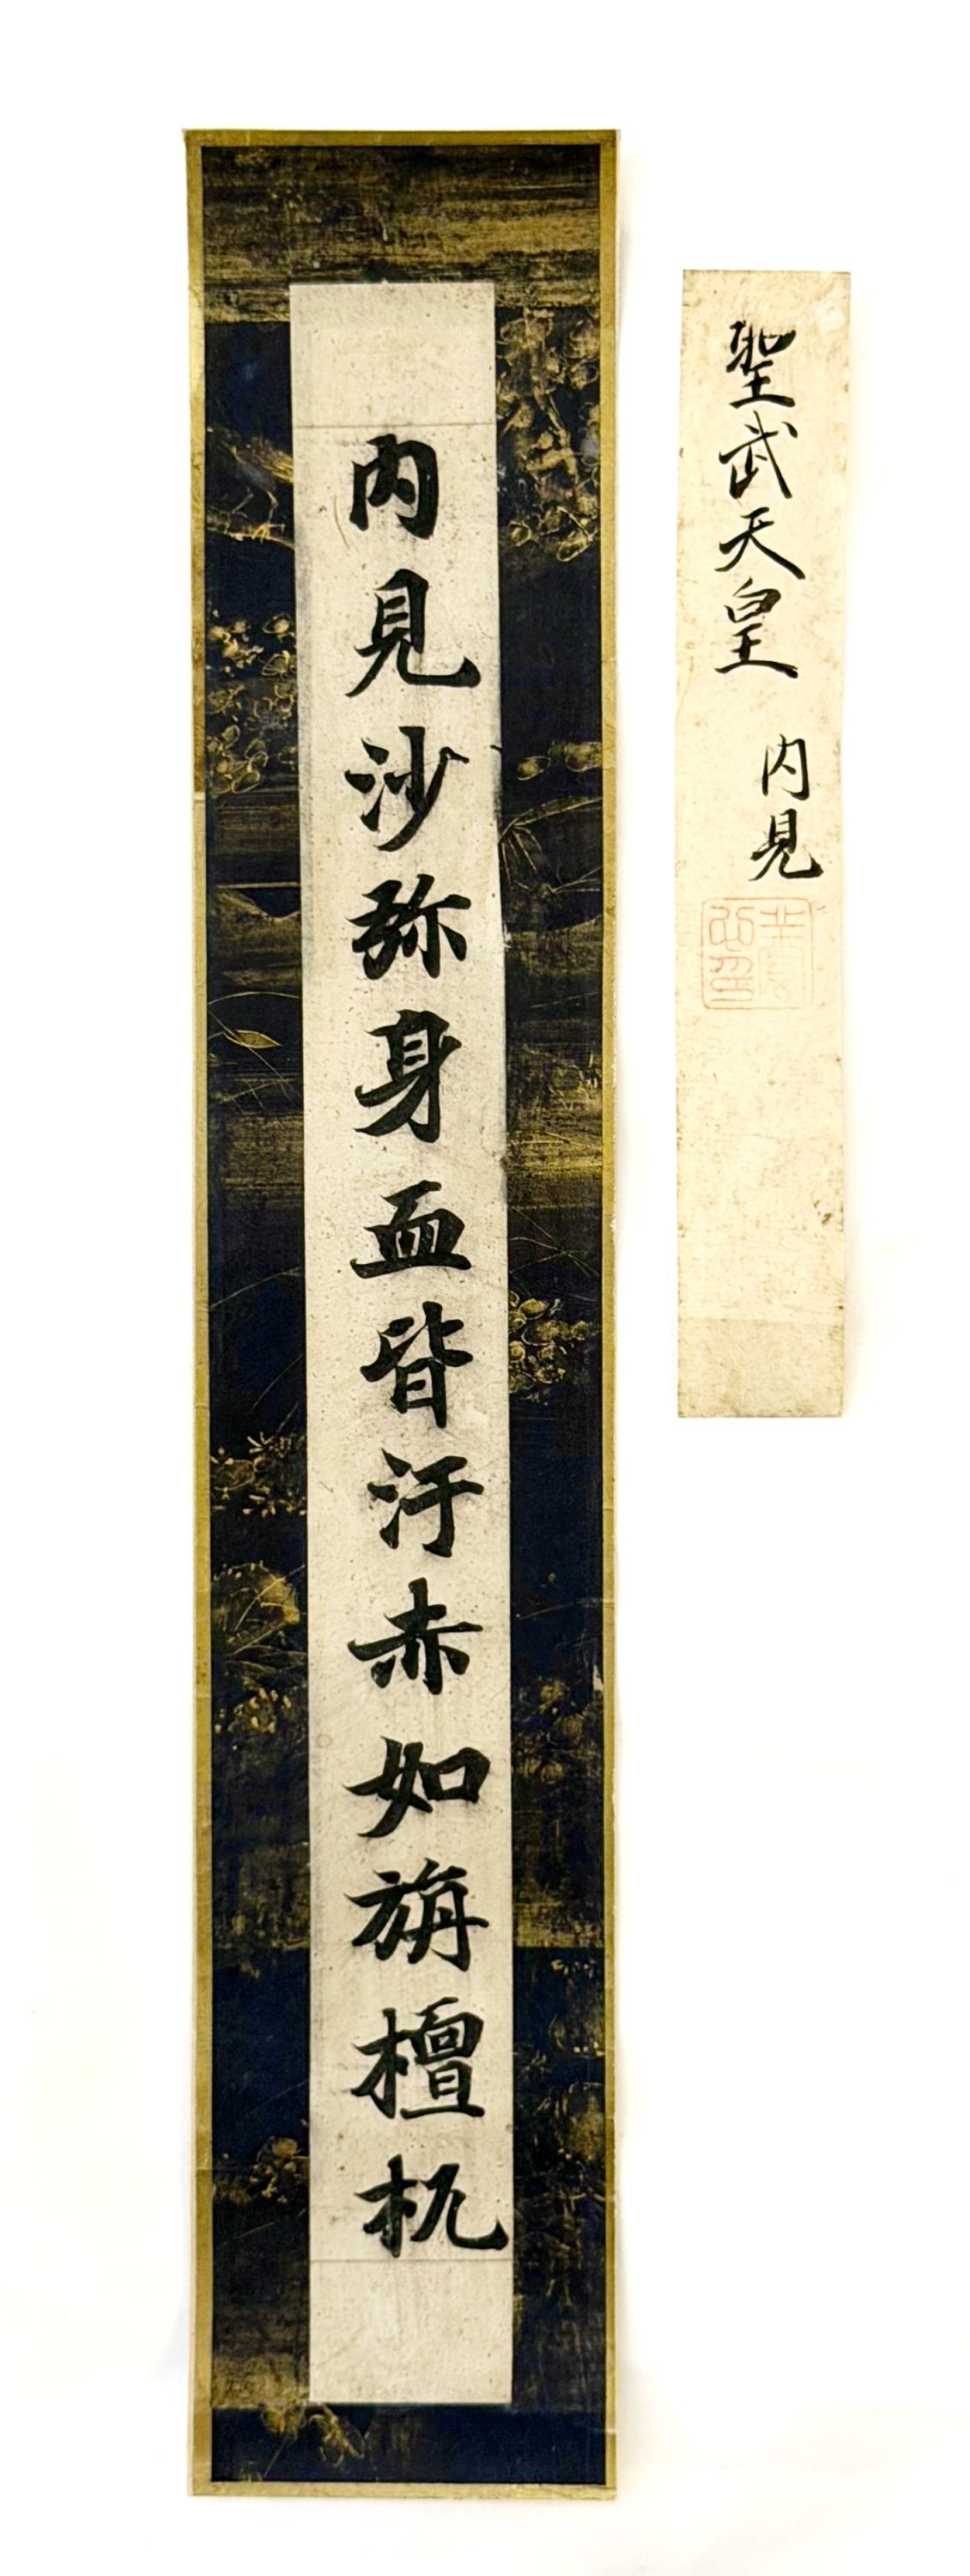 聖武天皇
内見
内見沙弥身血皆汙赤如旃檀机